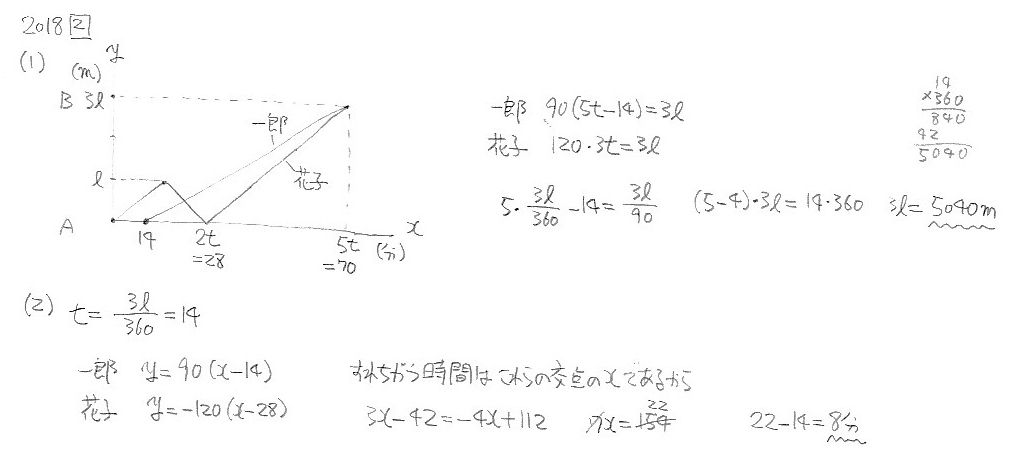 2018 2
(1)
y
(m)
B 3l
一郎
花子
l
A
14 2t 5t (分) x
=28 =70
一郎 90(5t-14)=3l
花子 120・3t=3l
5・3l/360-14=3l/90 (5-4)・3l=14・360 3l=5040m
14
×360
840
42
5040
(2) t=3l/360=14
一郎 y=90(x-14)
花子 y=-120(x-28)
すれちがう時間はこれらの交点のxであるから
3x-42=-4x+112 7x=154 22 22-14=8分